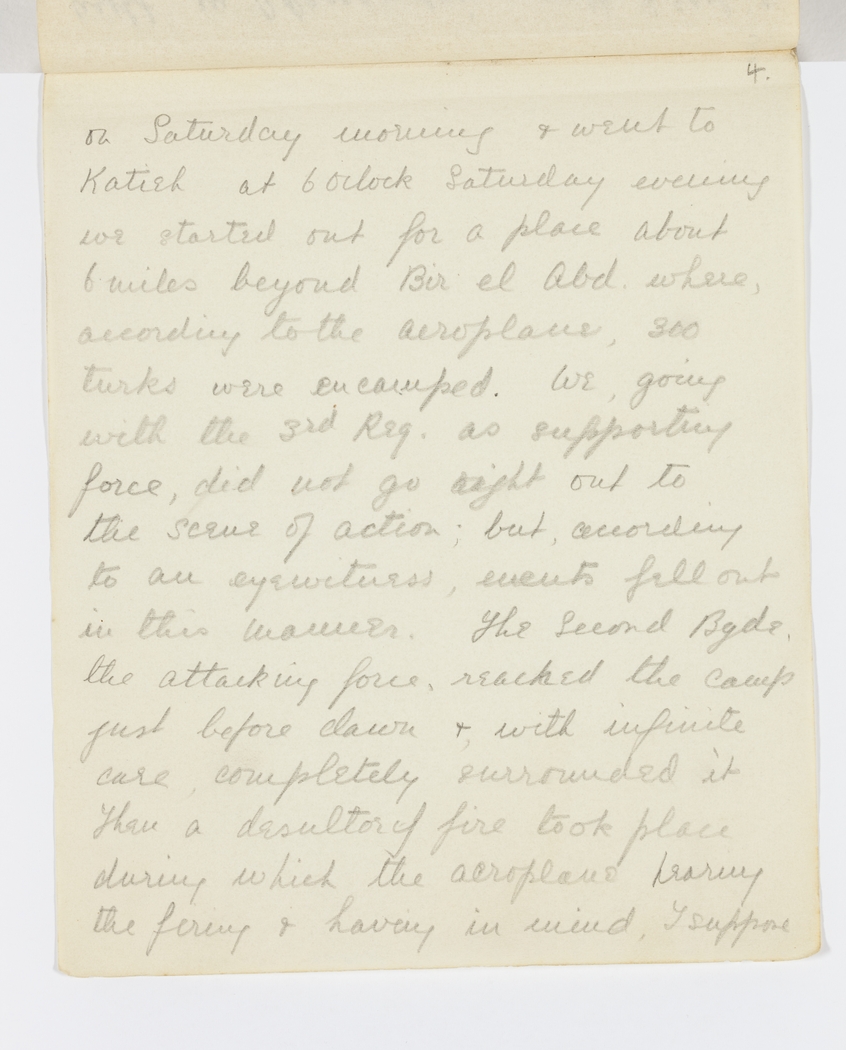 4.
on Saturday morning & went to
Katieh at 6 Oclock Saturday evening
we started out for a place about
6 miles beyond Bir el Abd. where,
according to the aeroplane, 300
turks were encamped. We, going
with the 3rd Reg. as supporting
force, did not go right out to
the scene of action; but, according
to an eyewitness, events fell out
in this manner. The Second Bgde,
the attacking force, reached the camp
just before dawn &, with infinite
care, completely surrounded it
Then a desultory fire took place
during which the aeroplane hearing
the firing & having in mind, I suppose